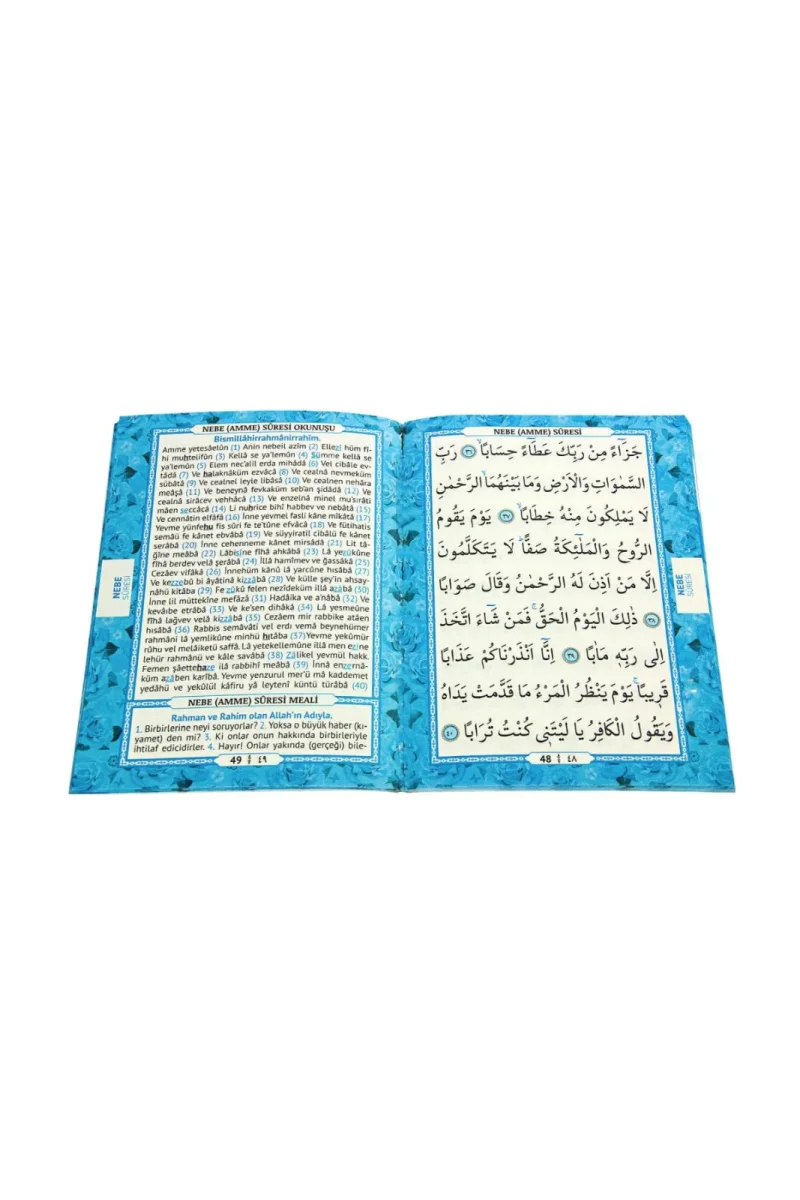 NEBE (AMME) SÛRESİ
جَزَٓاءً مِنْ رَبِّكَ عَطَٓاءً حِسَابًاۙ ﴿٣٦﴾ رَبِّ
السَّمٰوَاتِ وَالْاَرْضِ وَمَا بَيْنَهُمَا الرَّحْمٰنِ
لَا يَمْلِكُونَ مِنْهُ خِطَابًاۚ ﴿٣٧﴾ يَوْمَ يَقُومُ
الرُّوحُ وَالْمَلٰٓئِكَةُ صَفًّاۜ لَا يَتَكَلَّمُونَ
اِلَّا مَنْ اَذِنَ لَهُ الرَّحْمٰنُ وَقَالَ صَوَابًا
﴿٣٨﴾ ذٰلِكَ الْيَوْمُ الْحَقُّۚ فَمَنْ شَٓاءَ اتَّخَذَ
اِلٰى رَبِّهٖ مَاٰبًا ﴿٣٩﴾ اِنَّٓا اَنْذَرْنَاكُمْ عَذَابًا
قَرٖيبًاۚ يَوْمَ يَنْظُرُ الْمَرْءُ مَا قَدَّمَتْ يَدَاهُ
وَيَقُولُ الْكَافِرُ يَا لَيْتَنٖي كُنْتُ تُرَابًا ﴿٤٠﴾
48 ٤٨
NEBE SÛRESİ
NEBE (AMME) SÛRESİ OKUNUŞU
Bismillâhirrahmânirrahîm.
Amme yetesâelûn (1) Anin nebeil azîm (2) Ellezî hüm fî-
hi muhtelifûn (3) Kellâ se ya'lemûn (4) Sümme kellâ se
ya'lemûn (5) Elem nec'alil erda mihâdâ (6) Vel cibâle ev-
tâdâ (7) Ve halaknâküm ezvâcâ (8) Ve cealnâ nevmeküm
sübâtâ (9) Ve cealnel leyle libâsâ (10) Ve cealnen nehâra
meâşâ (11) Ve beneynâ fevkaküm seb'an şidâdâ (12) Ve
cealnâ sirâcev vehhâcâ (13) Ve enzelnâ minel mu'sirâti
mâen seccâcâ (14) Li nuhrice bihî habbev ve nebâtâ (15)
Ve cennâtin elfâfâ (16) İnne yevmel fasli kâne mîkâtâ (17)
Yevme yünfehu fis sûri fe te'tûne efvâcâ (18) Ve fütihatis
semâü fe kânet ebvâbâ (19) Ve süyyiratil cibâlü fe kânet
serâbâ (20) İnne cehenneme kânet mirsâdâ (21) Lit tâ-
ğîne meâbâ (22) Lâbisîne fîhâ ahkâbâ (23) Lâ yezûkûne
fîhâ berdev velâ şerâbâ (24) İllâ hamîmev ve ğassâkâ (25)
Cezâev vifâkâ (26) İnnehüm kânû lâ yarcûne hısâbâ (27)
Ve kezzebû bi âyâtinâ kizzâbâ (28) Ve külle şey'in ahsay-
nâhü kitâbâ (29) Fe zûkû felen nezîdeküm illâ azâbâ (30)
İnne lil müttekîne mefâzâ (31) Hadâika ve a'nâbâ (32) Ve
kevâıbe etrâbâ (33) Ve ke'sen dihâkâ (34) Lâ yesmeûne
fîhâ lağvev velâ kizzâbâ (35) Cezâem mir rabbike atâen
hısâbâ (36) Rabbis semâvâti vel erdı vemâ beynehümer
rahmâni lâ yemlikûne minhü hıtâba (37)Yevme yekûmür
rûhu vel melâiketü saffâ. Lâ yetekellemûne illâ men ezine
lehür rahmânü ve kâle savâbâ (38) Zâlikel yevmül hakk.
Femen şâettehaze ilâ rabbihî meâbâ (39) İnnâ enzernâ-
küm azâben karîbâ. Yevme yenzurul mer'ü mâ kaddemet
yedâhü ve yekûlül kâfiru yâ leytenî küntü türâbâ (40)
NEBE (AMME) SÛRESİ MEALİ
Rahman ve Rahim olan Allah'ın Adıyla.
1. Birbirlerine neyi soruyorlar? 2. Yoksa o büyük haber (kı-
yamet) den mi? 3. Ki onlar onun hakkında birbirleriyle
ihtilaf edicidirler. 4. Hayır! Onlar yakında (gerçeği) bile-
49 ٤٩
NEBE SÛRESİ